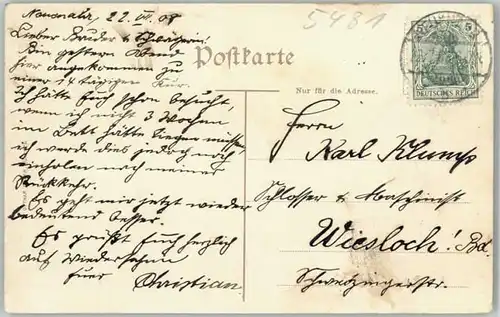 Neuenahr, 22. VII. 08
5481
Lieber Bruder & Schwägerin!
Bin gestern Abend
hier angekommen zu
einer 14 tägigen Kur.
Ich hätte Euch schon besucht,
wenn ich nicht 3 Wochen
im Bett hätte liegen müssen,
ich werde dies jedoch noch
einholen nach meiner
Rückkehr.
Es geht mir jetzt wieder
bedeutend besser.
Es grüßt Euch herzlich
auf Wiedersehen
Euer Christian.
Postkarte
Nur für die Adresse.
5
DEUTSCHES REICH
Herrn
Karl Klump
Schlosser & Maschinist
Wiesloch! Bd.
Schwetzingerstr.